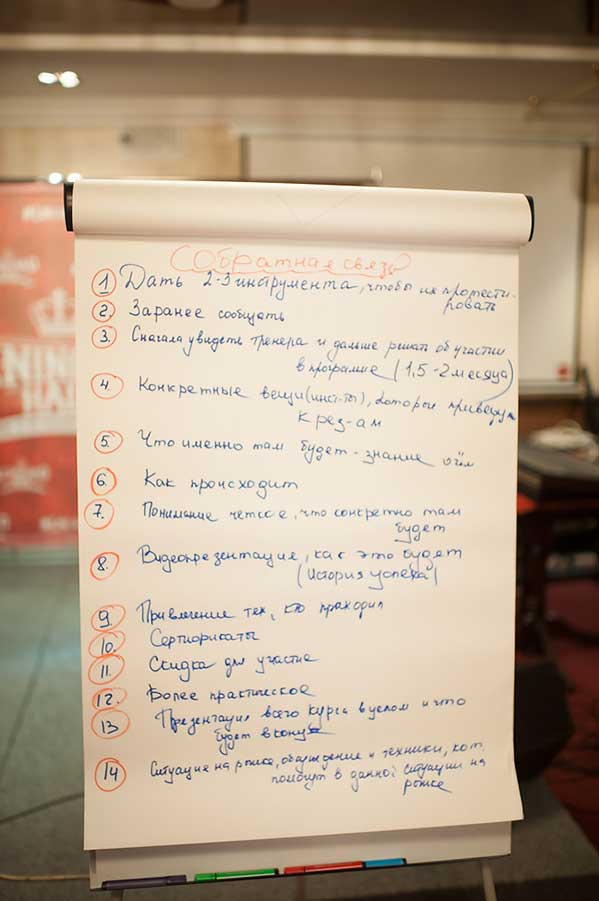 Собратная связь
1 Дать 2-3 инструмента, чтобы их протести-
ровать
2. Заранее сообщать
3. Сначала увидеть тренера и дальше решать об участии
в программе (1,5-2 месяца)
4. Конкретные вещи (инст-ты), которые приведут
к рез-ам
5. Что именно там будет - знание о чём
6. Как происходит
7. Понимание четкое, что конкретно там
будет
8. Видеопрезентация, как это будет
(История успеха)
9. Привлечение тех, кто проходил
10. Сертификаты
11. Скидка для участие
12. Более практическое
13 Презентация всего курса в целом и что
будет в конце
14 Ситуация на рынке, обсуждение и техники, кот.
помогут в данной ситуации на
рынке